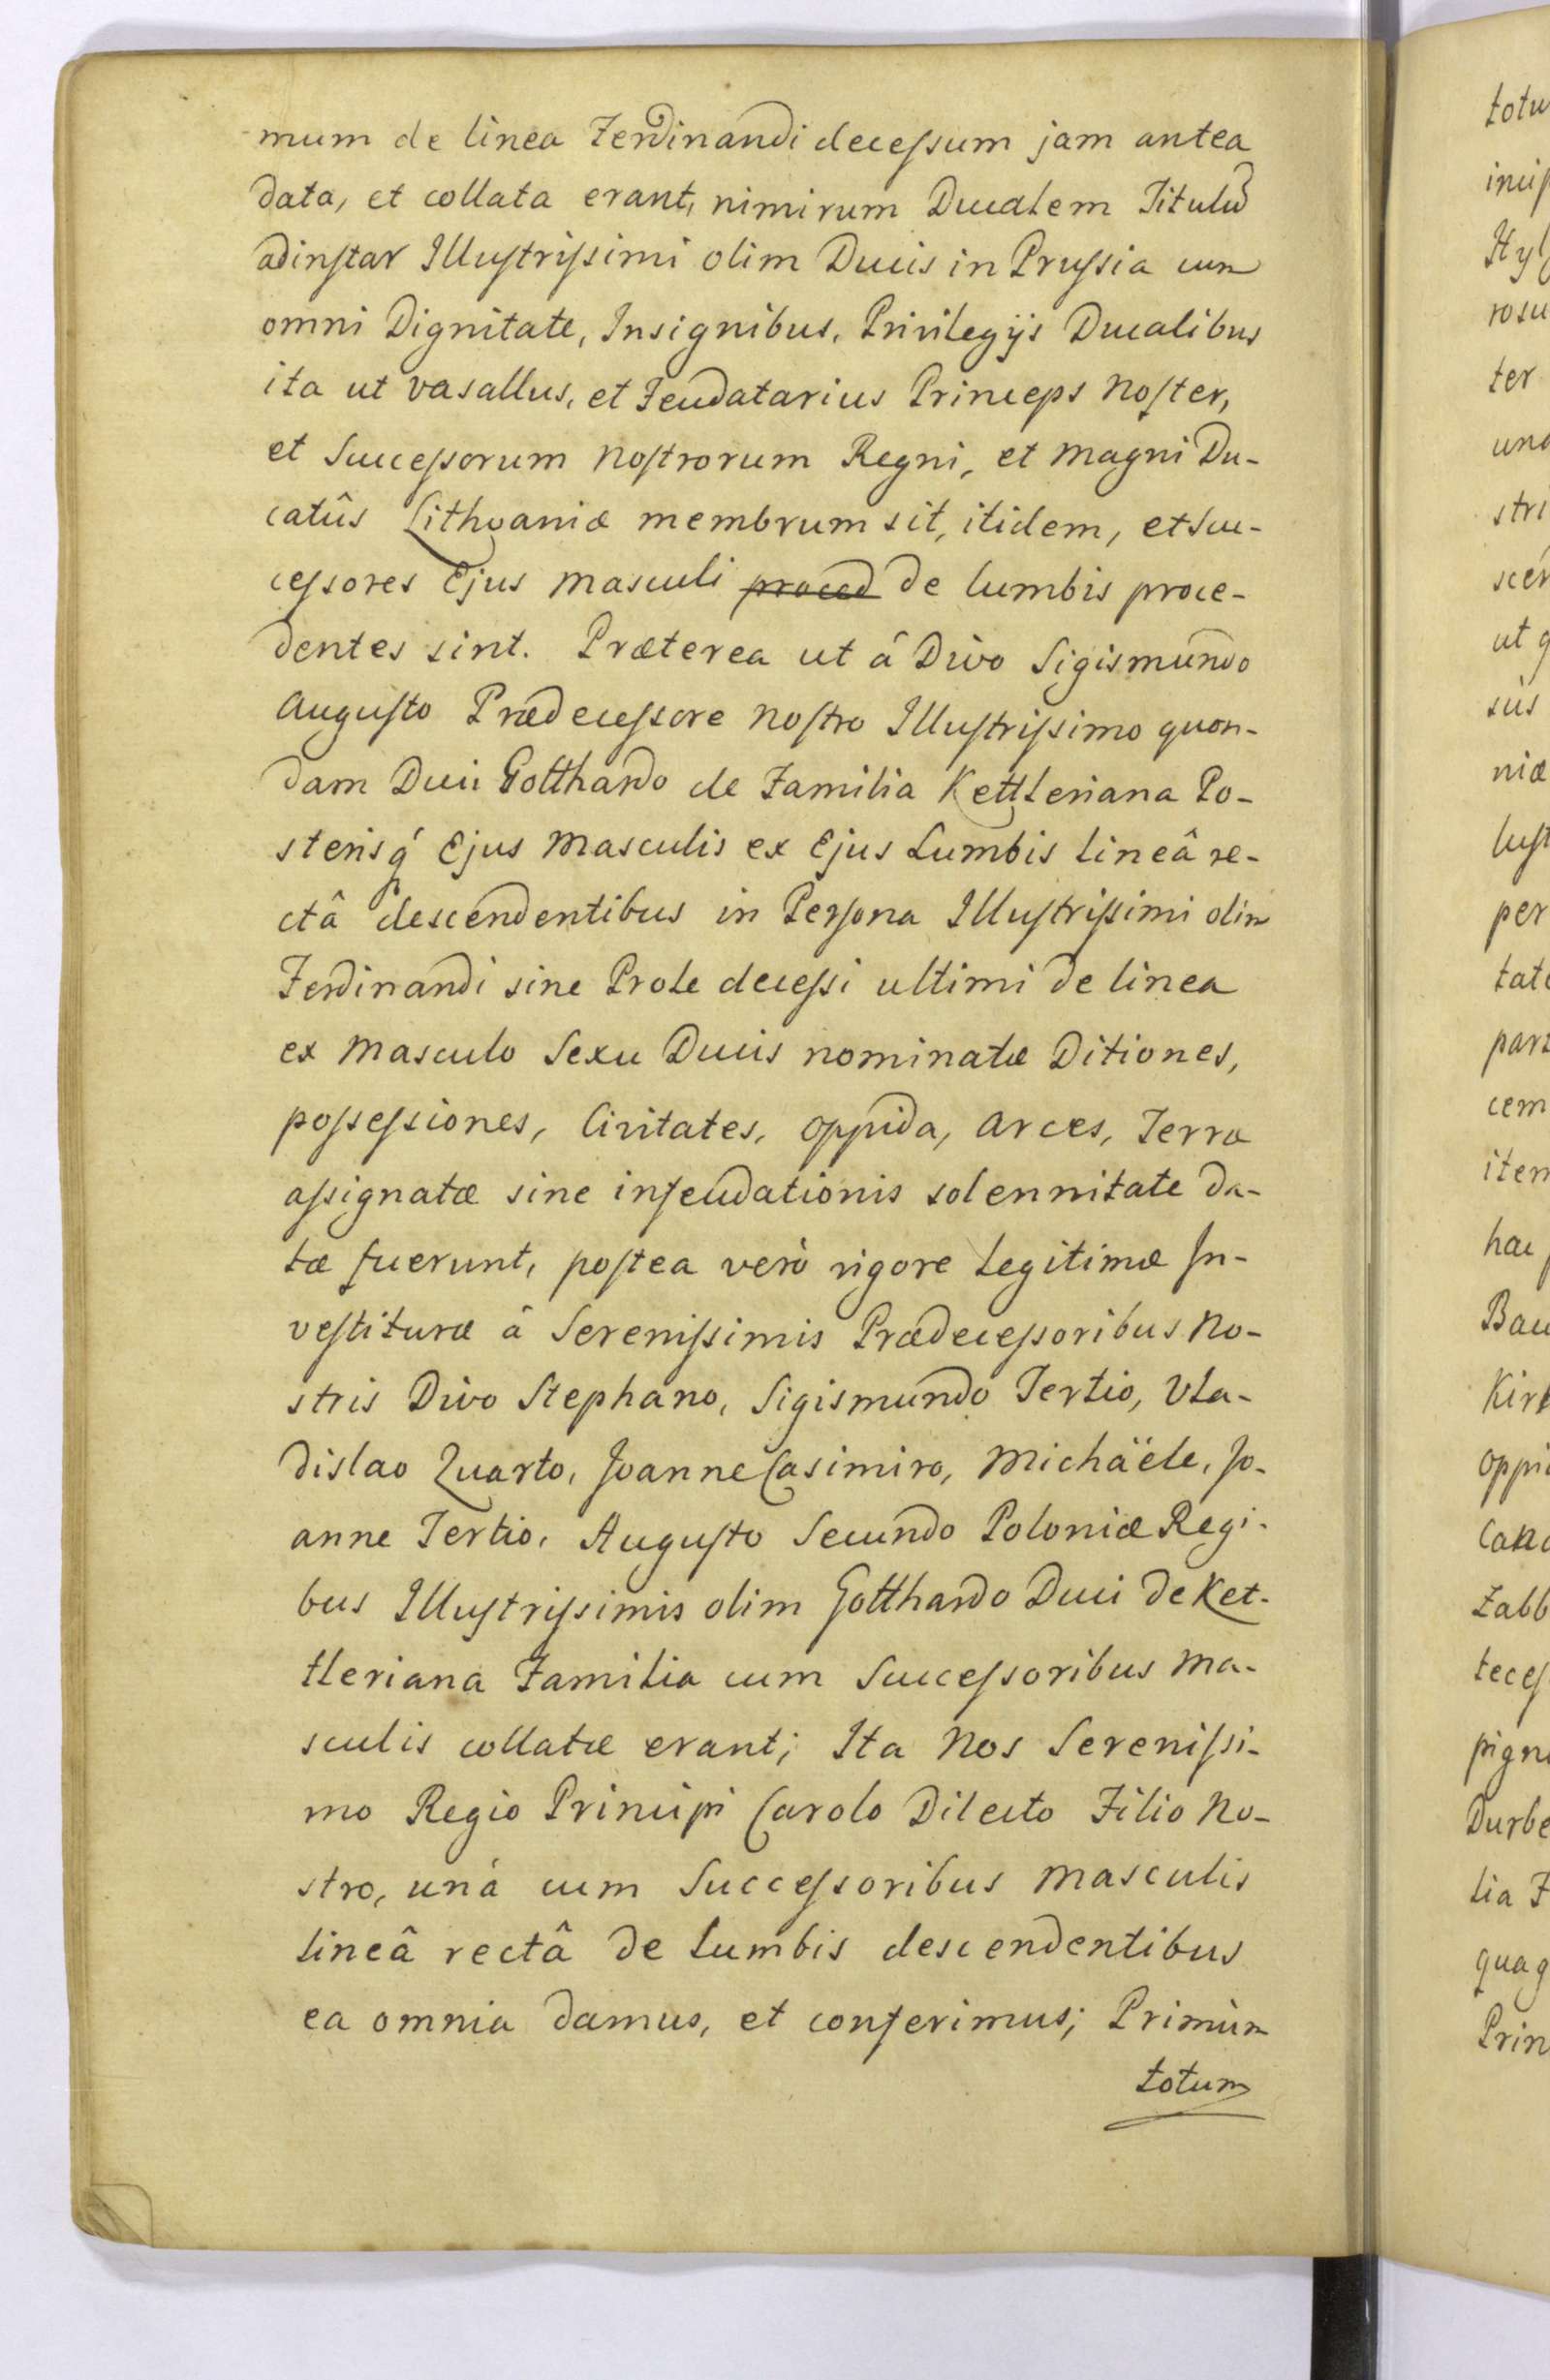 mum de linea Ferdinandi decessum jam antea
data, et collata erant, nimirum Ducalem Titulū
adinstar Illustrissimi olim Ducis in Prussia cum
omni Dignitate, Insignibus, Privilegijs Ducalibus
ita ut vasallus, et Feudatarius Princeps Noster,
et Successorum Nostrorum Regni, et Magni Du-
catûs Lithvaniæ membrum sit, itidem, et Suc-
cessores Ejus Masculi proced de lumbis proce-
dentes sint. Præterea ut â Divo Sigismundo
Augusto Prædecessore Nostro Illustrissimo quon-
dam Duci Gotthardo de Familia Kettleriana Po-
sterisq́ Ejus Masculis ex Ejus Lumbis lineâ re-
ctâ descendentibus in Persona Illustrissimi olim
Ferdinandi sine Prole decessi ultimi de linea
ex Masculo Sexu Ducis nominatæ Ditiones,
possessiones, Civitates, Oppida, Arces, Terræ
assignatæ sine infeudationis solennitate da-
tæ fuerunt, postea verò vigore Legitimæ In-
vestituræ â Serenissimis Prædecessoribus No-
stris Divo Stephano, Sigismundo Tertio, Vla-
dislao Quarto, Joanne Casimiro, Michäele, Jo-
anne Tertio, Augusto Secundo Poloniæ Regi-
bus Illustrissimis olim Gotthardo Duci de Ket-
tleriana Familia cum Successoribus Ma-
sculis collatæ erant; Ita Nos Serenissi-
mo Regio Principi Carolo Dilecto Filio No-
stro, unà cum Successoribus Masculis
lineâ rectâ de Lumbis descendentibus
ea omnia damus, et conferimus; Primùm
totum